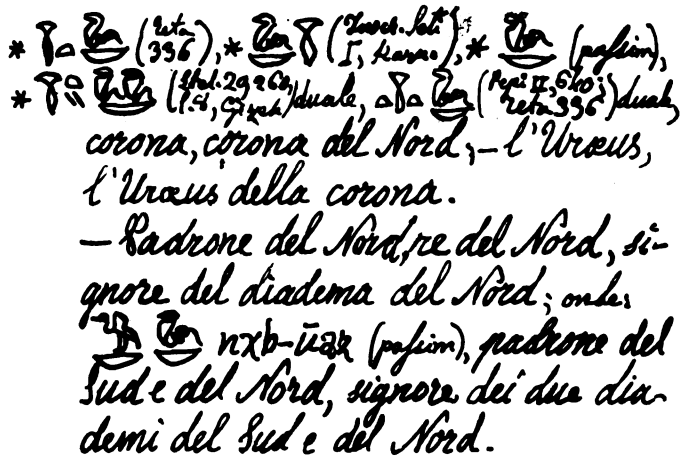 * (Teta 396), * (Insch. Seti I, Karn.), * (passim),
* duale, (Pepi II, 640; Teta 396) duale,
corona, corona del Nord; — l'Uræus,
l'Uræus della corona.
— Padrone del Nord, re del Nord, si-
gnore del diadema del Nord; onde:
nχb-ūaz (passim), padrone del
Sud e del Nord, signore dei due dia-
demi del Sud e del Nord.